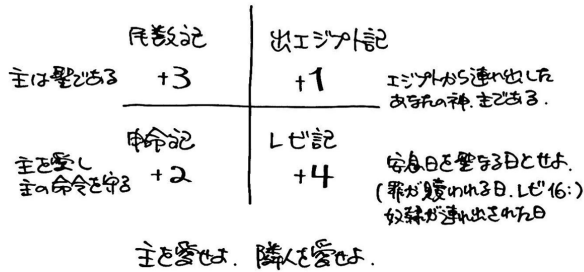 民数記
出エジプト記
主は聖である
+3
+1
エジプトから連れ出した
あなたの神、主である.
申命記
レビ記
主を愛し
主の命令を守る
+2
+4
安息日を聖なる日とせよ.
(罪が贖われる日.レビ16:)
奴隷が連れ出された日
主を愛せよ. 隣人を愛せよ.